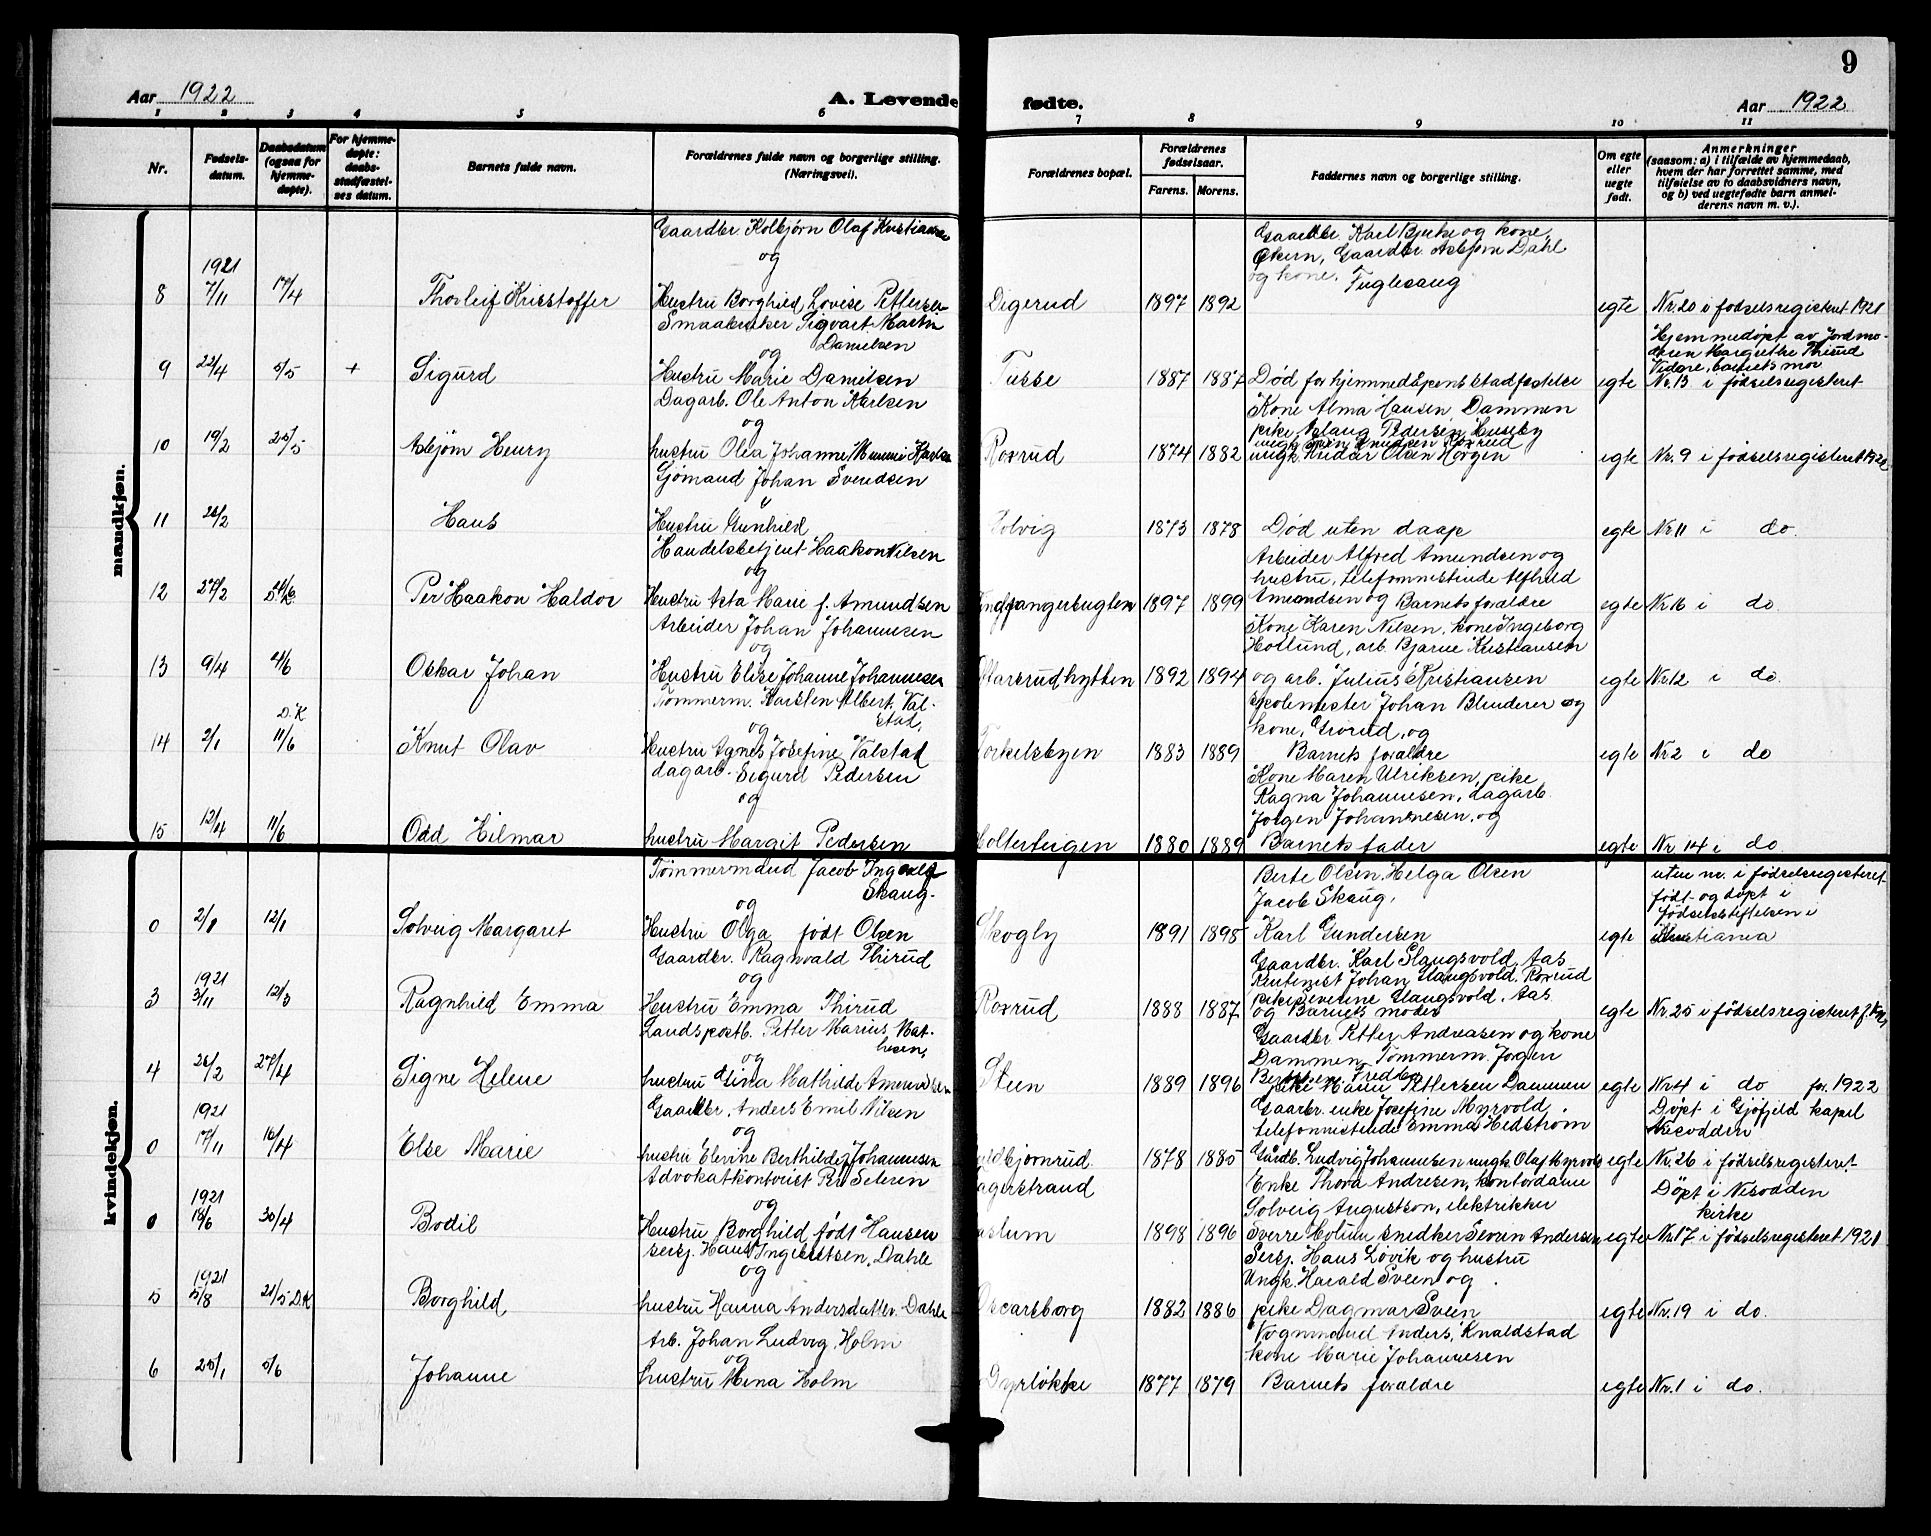 9
Aar 1922
A. Levende fødte.
Aar 1922
1 2 3 4 5 6 7 8 9 10 11
Nr.
Fødsels-
datum.
Daabsdatum
(ogsaa for
hjemme-
døpte).
For hjemme-
døpte:
daabs-
stadfæstel-
ses datum.
Barnets fulde navn.
Forældrenes fulde navn og borgerlige stilling.
(Næringsvei).
Forældrenes bopæl.
Forældrenes
fødselsaar.
Farens. Morens.
Faddernes navn og borgerlige stilling.
Om egte
eller
uegte
født.
Anmerkninger
(saasom: a) i tilfælde av hjemmedaab,
hvem der har forrettet samme, med
tilføielse av to daabsvidners navn,
og b) ved uegtefødte barn anmel-
derens navn m. v.).
mandkjøn.
Gaardbr. Kolbjørn Olaf Kristiansen
og
Gaardbr. Karl Bjerke og kone,
Økern, Gaardbr. Asbjørn Dahl
og kone, Fuglesang
1921
8 7/11 17/4 Thorleif Kristoffer Hustru Borghild Lovise Pettersen Digerud 1897 1892 egte Nr. 20 i fødselsregisteret 1921
Smaabruker Sigvart Martin
Danielsen
og
Hjemmedøpt av Jordmo-
deren Margrethe Thirud
Vidare, barnets mor
9 22/4 5/5 + Sigurd Hustru Marie Danielsen Tusse 1887 1887 Død før hjemmedåpens stadfæstelse egte Nr. 13 i fødselsregisteret
Dagarb. Ole Anton Karlsen
og
Kone Alma Hansen, Dammen
pike Aslaug Pedersen Huseby
ungk. Knudsen Roxrud
10 19/2 25/5 Asbjørn Henry hustru Olea Johanne Roxrud 1874 1882 ungk. Reidar Olsen Horgen egte Nr. 9 i fødselsregisteret 1922
Sjømand Johan Svendsen
"
11 26/2 Hans Hustru Gunhild Solvig 1873 1878 Død uten daap egte Nr 11 i do.
Handelsbetjent Haakon Nilsen
og
Arbeider Alfred Amundsen og
hustru, telefonnistinde Alfhild
12 27/2 D.K. Per Haakon Haldor Hustru Asta Marie f. Amundsen 1897 1899 Amundsen og Barnets forældre egte Nr 16 i do.
Arbeider Johan Johannesen
og
Kone Karen Nilsen, kone Ingeborg
Hoslund, arb. Bjarne Kristiansen
13 9/4 4/6 Oskar Johan Hustru Elise Johanne Johannesen 1892 1894 og arb. Julius Kristiansen egte Nr. 12 i do.
Tømmerm. Karsten Albert Val-
stad,
og
Skolemester Johan Blenderer og
kone, Grorud, og
D.K
14 2/1 11/6 Knut Olav Hustru Agnes Josefine Valstad Torkelsbyen 1883 1889 Barnets forældre egte Nr 2 i do
dagarb. Sigurd Pedersen
og
Kone Maren Ulriksen, pike
Ragna Johannesen, dagarb.
Jørgen Johannesen, og
15 12/4 11/6 Odd Hilmar hustru Margit Pedersen Holterteigen 1880 1889 Barnets fader egte Nr 14 i do.
kvindekjøn.
Tømmermand Jacob Ingvald
Skaug.
og
Berte Olsen, Helga Olsen
Jacob Skaug,
uten nr. i fødselsregisteret
født og døpt i
fødselsstiftelsen i
0 2/1 12/1 Solveig Margaret Hustru Olga født Olsen Skogly 1891 1898 Karl Gundersen egte Kristiania
Gaardbr. Ragnvald Thirud
og
Gaardbr. Karl Slaugsvold, Aas
Rentenist Johan Slaugsvold, Roxrud
pike Severine Slaugsvold, Aas
1921
3 3/11 12/3 Ragnhild Emma Hustru Emma Thirud Roxrud 1888 1887 og Barnets moder egte Nr. 25 i fødselsregisteret
Landspostb. Petter Marius Mat-
hesen,
og
Gaardbr Petter Andreasen og kone
Dammen, Tømmerm. Jørgen
4 26/2 27/4 Signe Helene hustru Gina Mathilde Amundsen Steen 1889 1896 pike Maren Pettersen Dammen egte Nr 4 i do for 1922
Gaardbr. Anders Emil Nilsen
og
Gaarbr. enke Josefine Myrvold
telefonnistinde Emma Hedstrøm
Døpt i Gjøfjeld kapel
Nesodden
1921
0 17/11 16/4 Else Marie hustru Elevine Berthilde Johannesen Fjeldbjørnrud 1878 1885 Gårdb. Ludvig Johannesen ungk. Olaf Myrvold egte Nr. 26 i fødselsregisteret
Advokatkontorist Per Selsen
og
Fagerstrand
Enke Thora Andresen, kontordame
Solveig Augustson, elektrikker
Døpt i Nesodden
kirke
1921
0 18/6 30/4 Bodil Hustru Borghild født Hansen 1898 1896 Sverre Holum snedker Severin Andersen egte Nr. 17 i fødselsregisteret 1921
sersj. Hans Ingebretsen, Dahle
og
Sersj. Hans Løvik og hustru
Ungk. Harald Sveen og
1921
5 5/8 21/5 D.K Borghild hustru Hanna Andersdatter Dahle Oscarsborg 1882 1886 pike Dagmar Sveen egte Nr. 19 i do.
Arb. Johan Ludvig Holm
og
Vognmand Anders Knaldstad
kone Marie Johannesen
6 25/1 5/6 Johanne hustru Mina Holm Gyrløkke 1877 1879 Barnets forældre egte Nr. 1 i do.